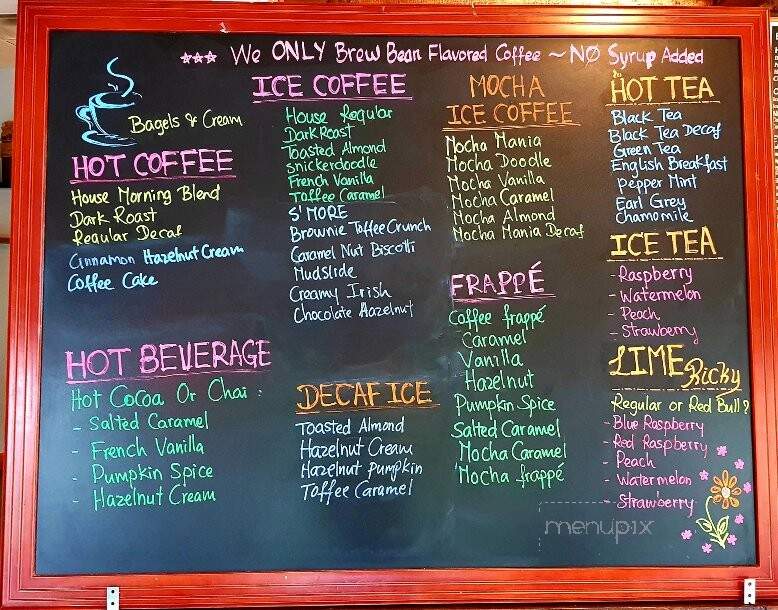 *** We ONLY Brew Bean Flavored Coffee ~ NO Syrup Added
Bagels & Cream
HOT COFFEE
House Morning Blend
Dark Roast
Regular Decaf
Cinnamon Hazelnut Cream
Coffee Cake
HOT BEVERAGE
Hot Cocoa Or Chai :
- Salted Caramel
- French Vanilla
- Pumpkin Spice
- Hazelnut Cream
ICE COFFEE
House Regular
Dark Roast
Toasted Almond
Snickerdoodle
French Vanilla
Toffee Caramel
S'MORE
Brownie Toffee Crunch
Caramel Nut Biscotti
Mudslide
Creamy Irish
Chocolate Hazelnut
DECAF ICE
Toasted Almond
Hazelnut Cream
Hazelnut Pumpkin
Toffee Caramel
MOCHA
ICE COFFEE
Mocha Mania
Mocha Doodle
Mocha Vanilla
Mocha Caramel
Mocha Almond
Mocha Mania Decaf
FRAPPÉ
Coffee frappé
Caramel
Vanilla
Hazelnut
Pumpkin Spice
Salted Caramel
Mocha Caramel
Mocha frappé
HOT TEA
Black Tea
Black Tea Decaf
Green Tea
English Breakfast
Pepper Mint
Earl Grey
Chamomile
ICE TEA
- Raspberry
- Watermelon
- Peach
- Strawberry
LIME Ricky
Regular or Red Bull?
- Blue Raspberry
- Red Raspberry
- Peach
- Watermelon
- Strawberry
menupix